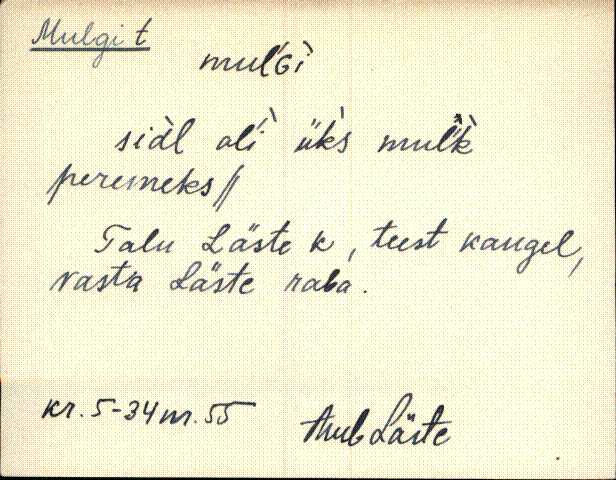 Mulgi t
mul'Gì
siàl ol'ì ük̀s mul'k̀
peremeks //
Talu Läste k, teest kaugel,
vasta Läste raba.
kr. 5-34 nr. 55
Läste